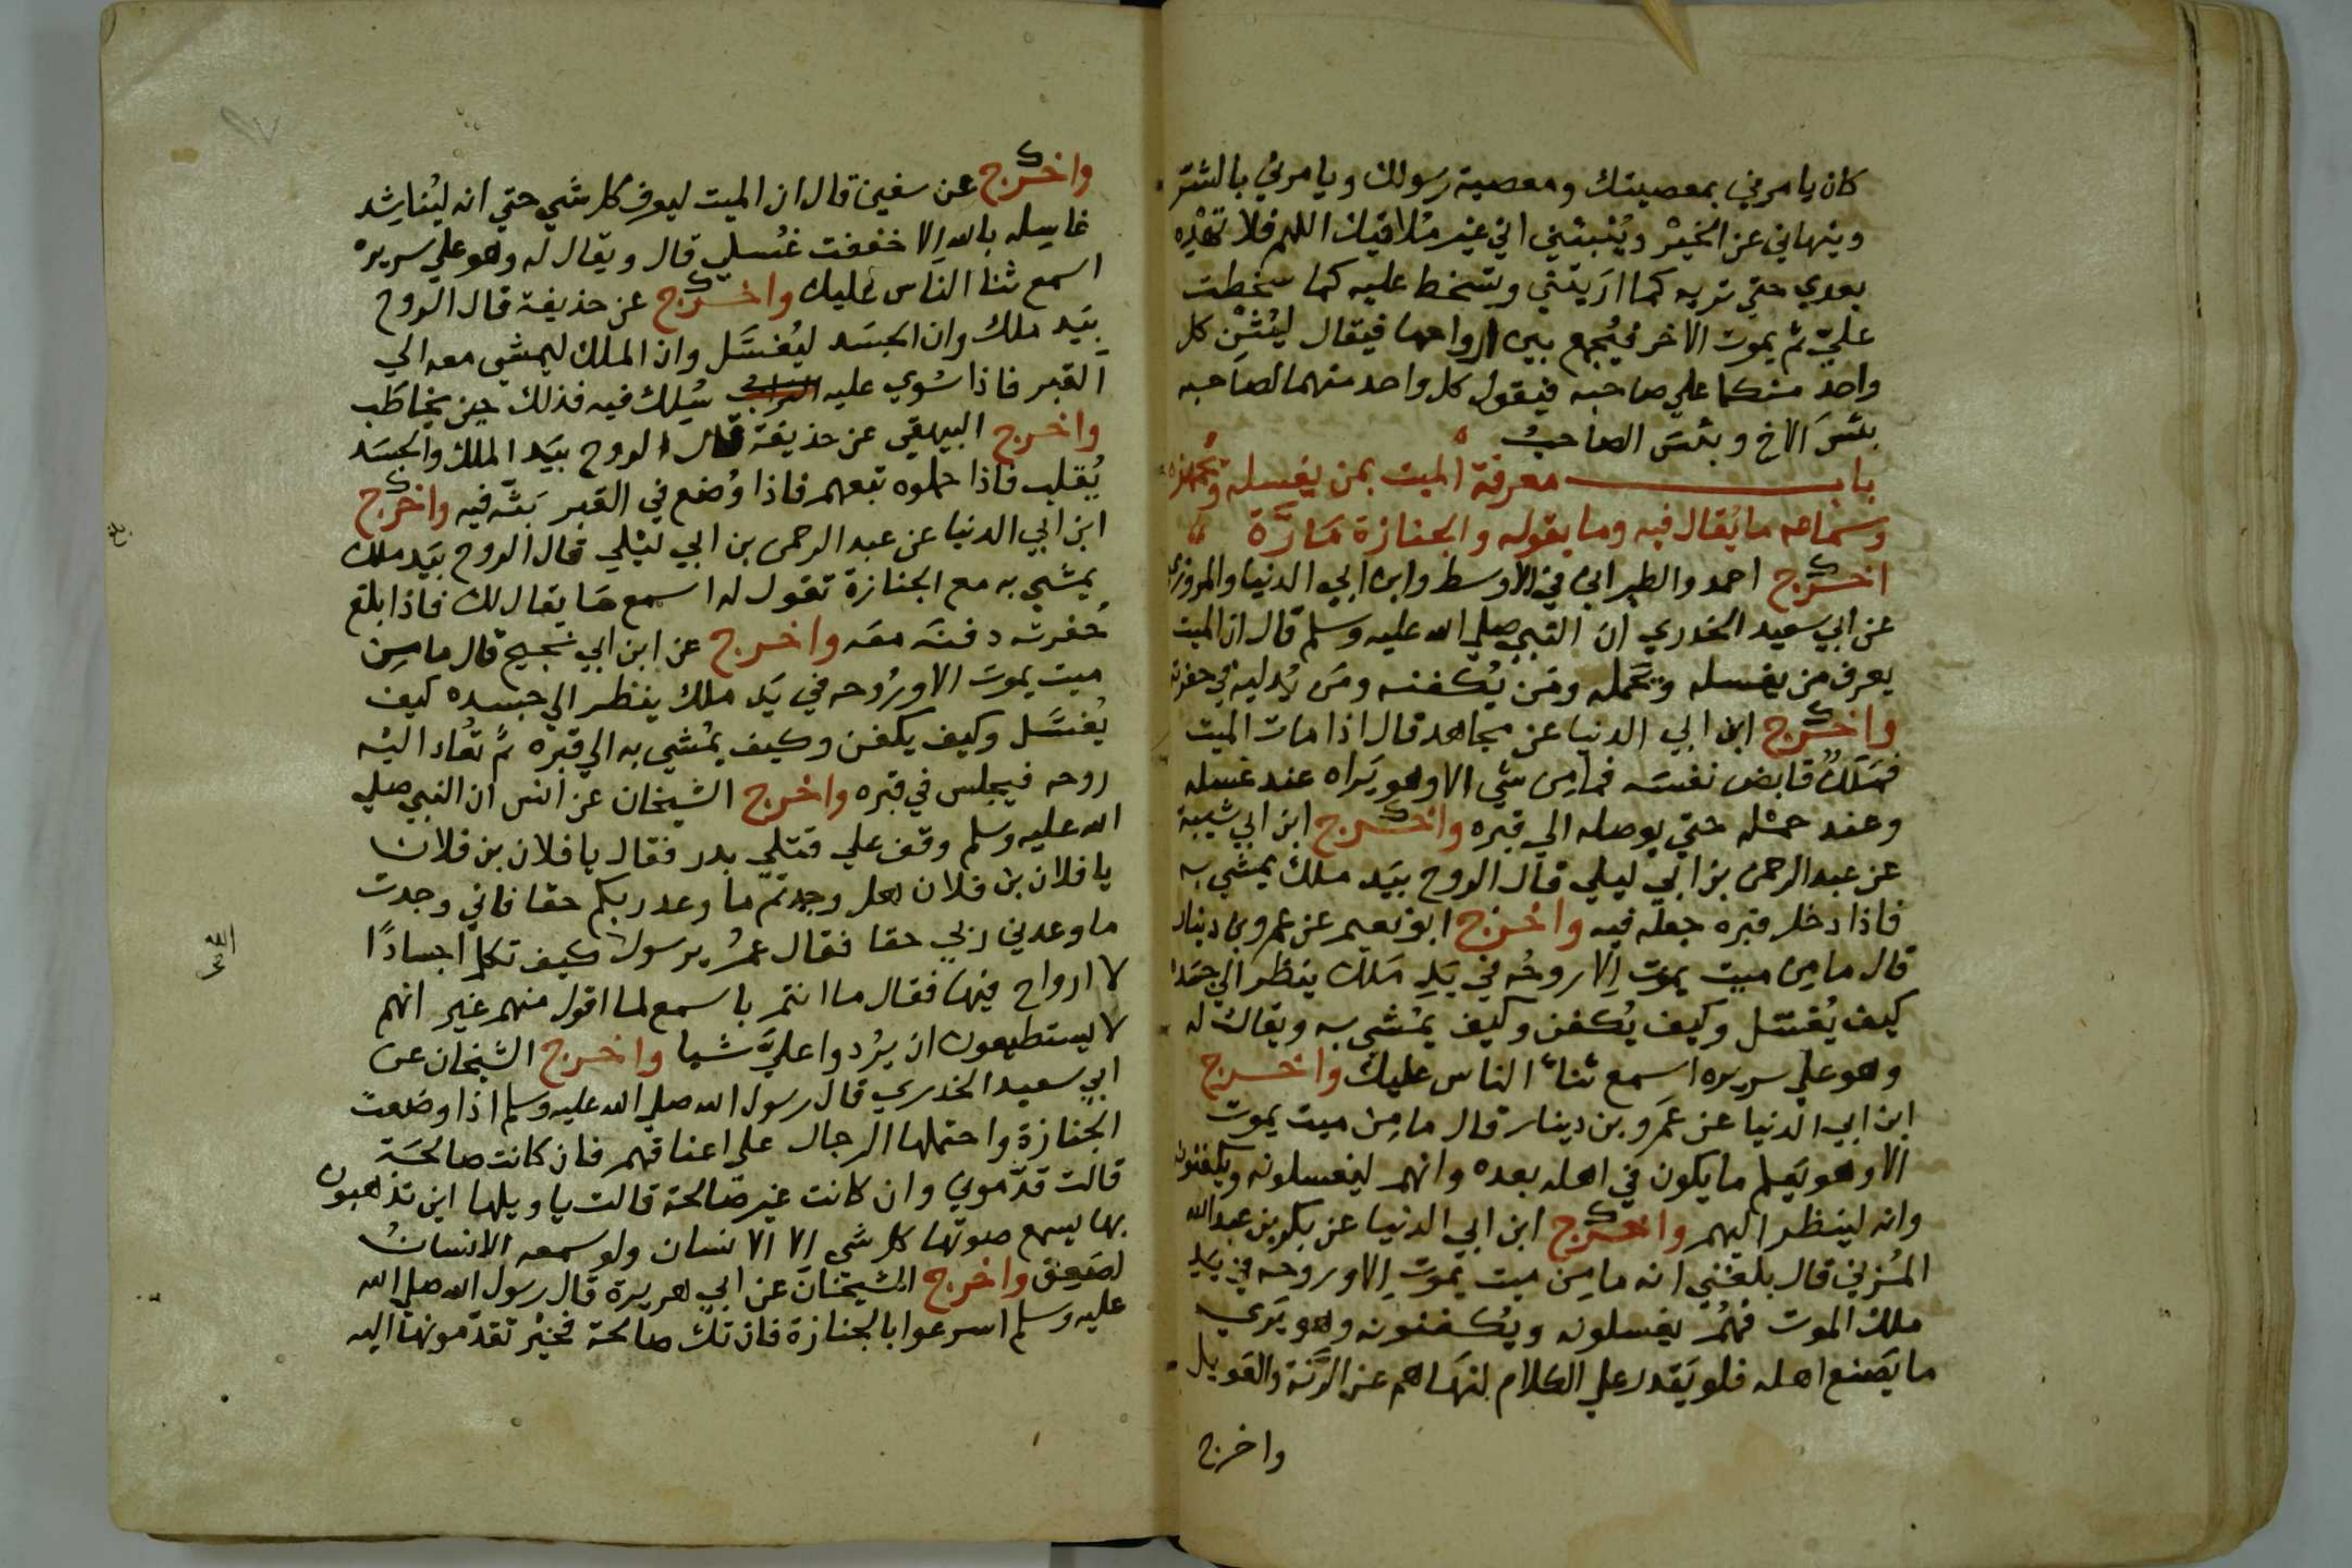 كان يامرني بمعصيتك ومعصية رسولك ويامرني بالشر
وينهاني عن الخير وينبئني اني غير ملاقيك اللهم فلا تهده
بعدي حتي تريه كما اريتني وتسخط عليه كما سخطت
عليّ ثم يموت الاخر فيُجمع بين ارواحهما فيقال ليُثْنِ كل
واحد منكما علي صاحبه فيقول كل واحد منهما لصاحبه
بئسَ الاخ وبئسَ الصاحبُ
باب معرفة الميت بمن يغسله ويجهزه
وسماعه ما يُقال فيه وما يقوله والجنازة مَارَّة
اخرج احمد والطبراني في الاوسط وابن ابي الدنيا والمروزي
عن ابي سعيد الخدري ان النبي صلي الله عليه وسلم قال ان الميت
يعرف من يغسله ويَحمله ومَن يُكفنه ومَن يُدليه في حفرته
واخرج ابن ابي الدنيا عن مجاهد قال اذا مات الميت
فمَلَكٌ قابض نفسَه فما من شي الا وهو يَراه عند غسله
وعند حمْله حتي يوصله الي قبره واخرج ابن ابي شيبة
عن عبد الرحمن بن ابي ليلي قال الروح بيَد ملك يمشي به
فاذا دخل قبره جعله فيه واخرج ابو نعيم عن عمرو بن دينار
قال ما مِن ميت يموت اِلا روحُه في يَدِ مَلَك ينظر الي جسَده
كيف يُغسّل وكيف يُكفن وكيف يمْشي به ويقال له
وهو علي سريره اسمع ثناءَ الناس عليك واخرج
ابن ابي الدنيا عن عَمرو بن دينار قال ما مِن ميت يموت
الا وهو يَعلم ما يكون في اهله بعده وانهم ليغسلونه ويكفنونه
وانه لينظر اليهم واخرج ابن ابي الدنيا عن بكر بن عبد الله
المُزني قال بلغَني انه ما مِن ميت يموت اِلا وروحه في يَدِ
ملك الموت فهُمْ يغسلونه ويُكفنونه وهو يَري
ما يَصنع اهله فلو يَقدر علي الكلام لنهَاهم عن الرَّنة والعَويل
واخرج
واخرج عن سفين قال ان الميت ليعرف كل شَي حتي انه ليُناشِد
غاسِله بالله اِلا خففت غسلي قال ويقال له وهو علي سريره
اسمع ثنا الناس عليك واخرج عن حذيفة قال الروح
بيَد ملك وان الجسَد ليُغسَّل وان الملك ليمشي معه الي
القبر فاذا سُوي عليه سُلِك فيه فذلك حِين يخاطَب
واخرج البيهقي عن حذيفة قال الروح بيَد الملك والجسَد
يُقلب فاذا حملوه تبعهم فاذا وُضع في القبر بَثَّه فيه واخرج
ابن ابي الدنيا عن عبد الرحمن بن ابي ليْلي قال الروح بيَد ملك
يمشي به مع الجنازة تقول له اسمع مَا يقال لك فاذا بلغ
حُفرته دفنَه معَه واخرج عن ابن ابي نجيح قال ما مِن
ميت يموت الا ورُوحه في يَد ملك ينظر الي جسده كيف
يُغسَّل وكيف يكفن وكيف يُمْشي به الي قبره ثمّ تعَاد اليْه
روحه فيجلس في قبره واخرج الشيخان عن انس ان النبي صلي
الله عليه وسلم وقف علي قتلي بدر فقال يا فلان بن فلان
يا فلان بن فلان هل وجدتم ما وعد ربكم حقا فاني وجدت
ما وعدني ربي حقا فقال عمرُ يرسول كيف تكلم اجسادًا
الله
لا ارواح فيهَا فقال ما انتم باسمع لما اقول منهم غير انهم
لا يستطيعون ان يرُدوا عليَّ شيا واخرج الشيخان عن
ابي سعيد الخدري قال رسول الله صلي الله عليه وسلم اذا وضعت
الجنازة واحتملها الرجال علي اعناقهم فان كانت صالحَة
قالت قدّموني وان كانت غير صَالحة قالت يا ويلها اين تذهبون
بها يسمع صوتَها كل شَي اِلا الانسان ولو سمعه الانسانُ
لصَعِق واخرج الشيخَان عن ابي هريرة قال رسول الله صلي الله
عليه وسلم اسرعوا بالجنازة فان تك صالحة فخيْر تقدّمونهَا اليه